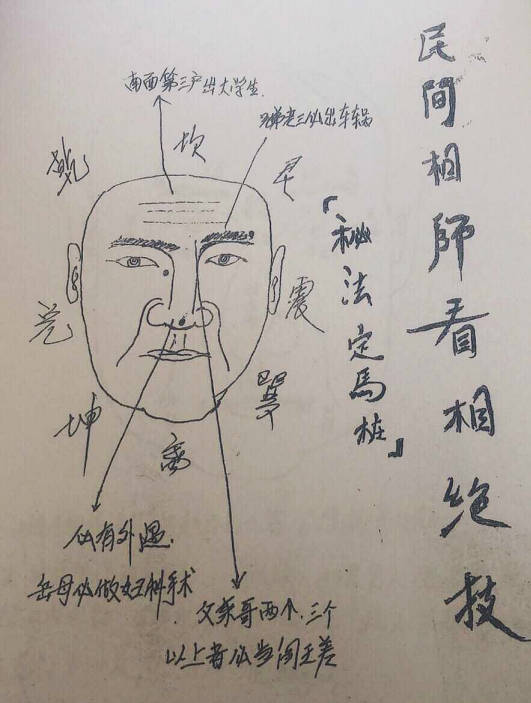 民间相師看相绝技
「秘法定馬桩」
南面第三户出大学生.
兄弟老三必出车祸
乾
坎
艮
兑
震
坤
巽
离
必有外遇.
岳母必做妇科手术
父亲哥两个.三个
以上者必当阎王差